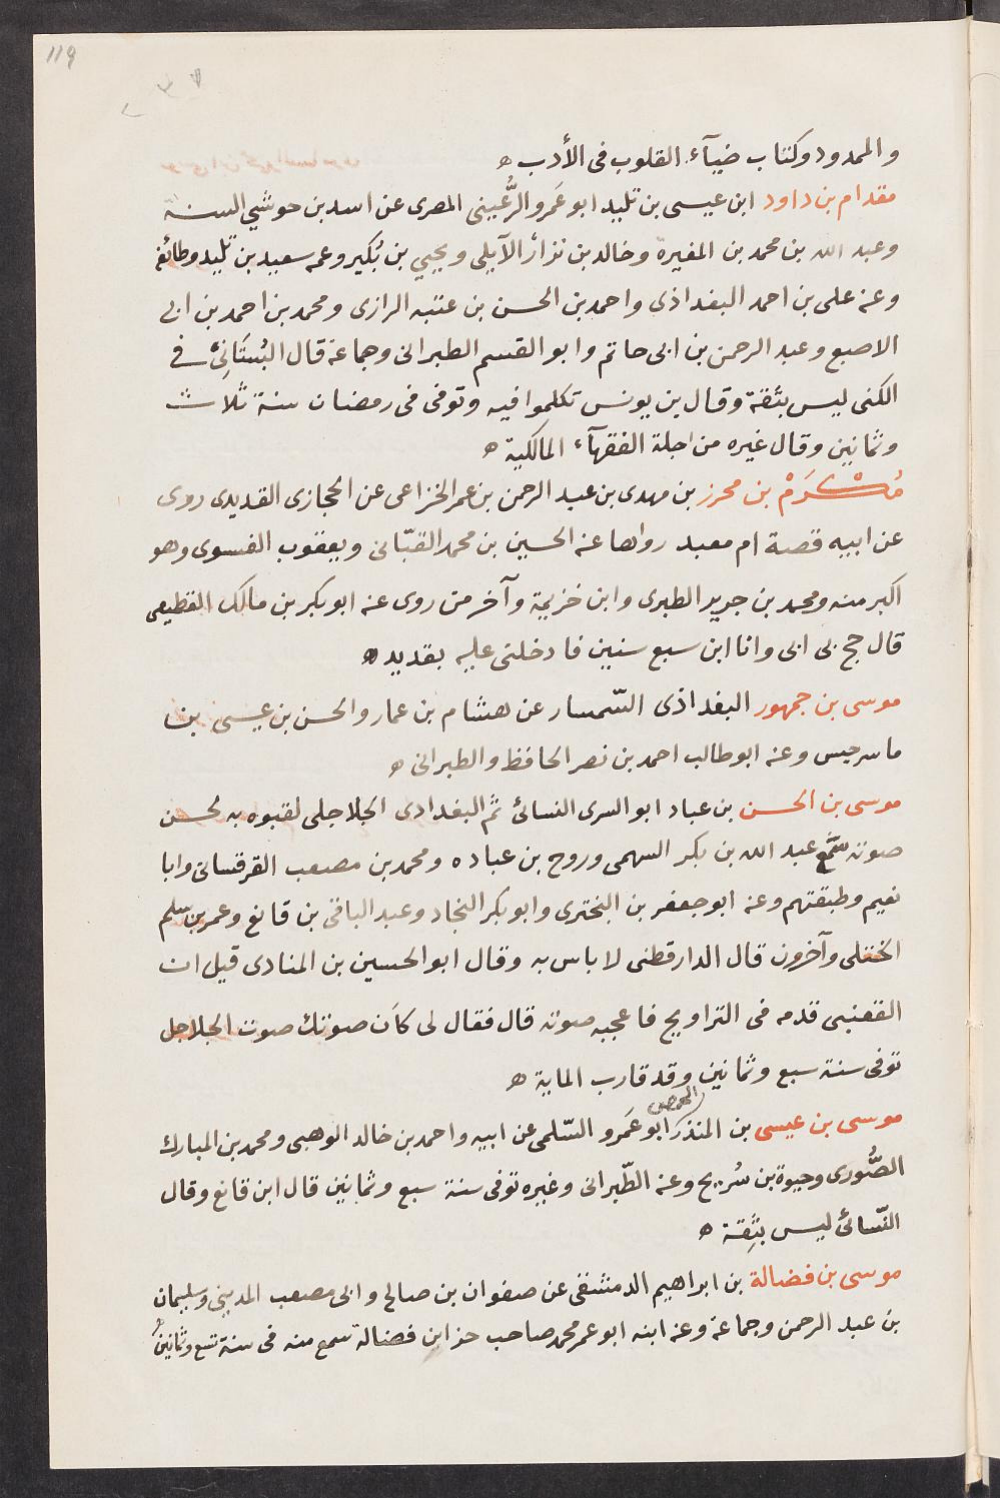 119
والممدود وكتاب ضيآء القلوب فى الأدب ه
مقدام بن داود ابن عيسى بن تليد ابو عَمرو الرُّعينى المصرى عن اسد بن حوشي السنة
وعبد الله بن محمد بن المغيرة وخالد بن نزار الآيلى ويحيي بن بُكير وعمه سعيد بن تليد وطائفة
وعنه على بن احمد البغداذى واحمد بن الحسن بن عتبه الرازى ومحمد بن احمد بن ابى
الاصبع وعبد الرحمن بن ابى حاتم وابو القسم الطبرانى وجماعة قال النسَائىُ فى
الكنى ليس بثقة وقال بن يونس تكلموا فيه وتوفى فى رمضان سنة ثلاث
وثمانين وقال غيره من اجلة الفقهآء المالكية ه
مُكْرَمْ بن محرز بن مهدى بن عبد الرحمن بن عمر الخزاعى عن الحجازى القديدى روى
عن ابيه قصة ام معبد رواها عنه الحسين بن محمد القبّانى ويعقوب الفسوى وهو
اكبر منه ومحمد بن جرير الطبرى وابن خزيمة وآخر من روى عنه ابو بكر بن مالك القطيعى
قال حج بى ابى وانا ابن سبع سنين فادخلنى عليه بقديد ه
موسى بن جمهور البغداذى السّمسار عن هشام بن عمار والحسن بن عيسى بن
ماسرجيس وعنه ابو طالب احمد بن نصر الحافظ والطبرانى ه
موسى بن الحسن بن عباد ابو السرى النسائ ثم البغدادى الجلاجلى لقبوه به لحسن
صوته سَمع عبد الله بن بكر السهمى وروح بن عباده ومحمد بن مصعب القرقسانى وابا
نعيم وطبقتهم وعنه ابو جعفر بن البخترى وابو بكر النجاد وعبد الباقى بن قانع وعمر بن سلم
الختلى وآخرون قال الدارقطنى لا باس به وقال ابو الحسين بن المنادى قيل ان
القعنبى قدمه فى التراويح فاعجبه صوته قال فقال لى كاَن صوتك صوت الجلاجل
توفى سنة سبع وثمانين وقد قارب الماية ه
موسى بن عيسى بن المنذر الحمصى ابو عَمرو السّلمى عن ابيه واحمد بن خالد الوهبى ومحمد بن المبارك
الصُّورى وحيوة بن شُريح وعنه الطّبرانى وغيره توفى سنة سبع وثمانين قال ابن قانع وقال
النّسائ ليس بثِقة ه
موسى بن فضالة بن ابراهيم الدمشقى عن صفوان بن صالح وابى مصعب المدينى وسليمان
بن عبد الرحمن وجماعة وعنه ابنه ابو عمر محمد صاحب جزابن فضالة سمع منه فى سنة تسع وثمانين ه